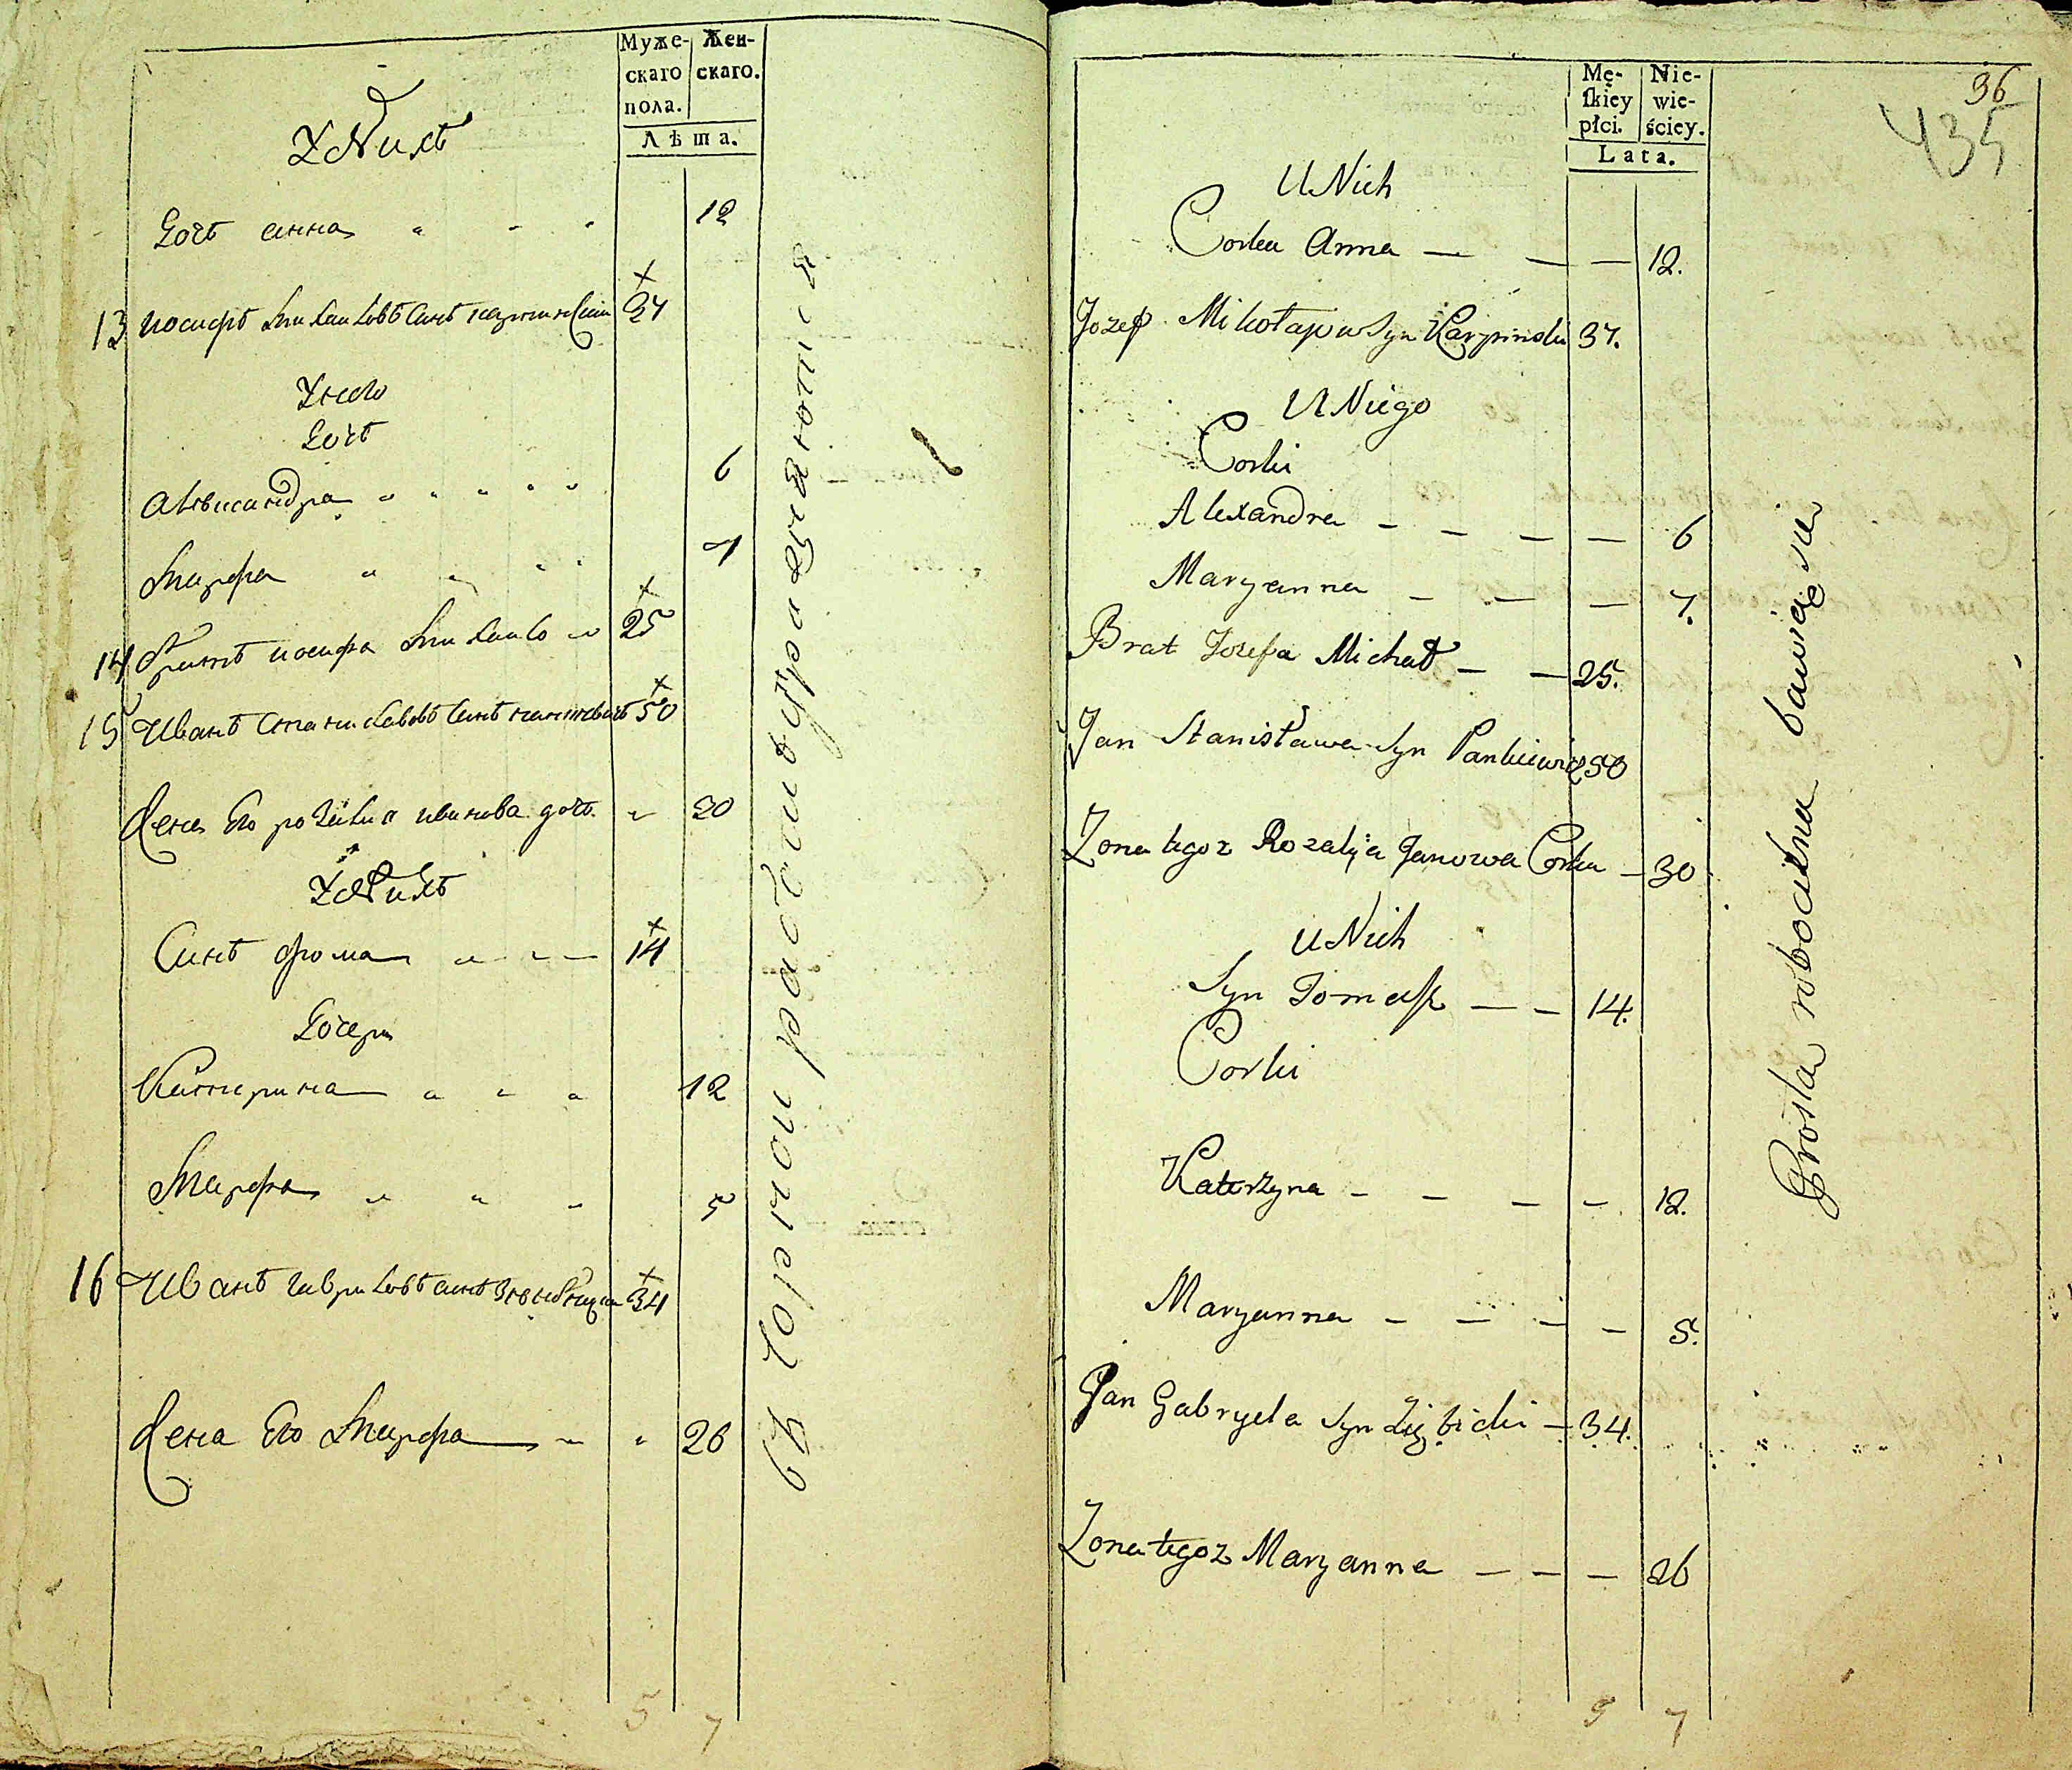 Муже-
скаго
пола.
Жен-
скаго.
Лѣта.
У Нихъ
Дочь анна 12
13 иосифъ Николаевъ Синъ карпинский 37
У него
Доч
Александра 6
Марфа 7
14 Братъ иосифа 25
15 Иванъ Станиславовъ Синъ панкевичъ 50
Жена Его розалиа иванова доч. 30
У Нихъ
Синъ фома 14
Дочери
Катерина 12
Марфа 5
16 Иванъ гаврилов синъ 34
Жена Его Марфа 26
въ чорной работи упражняютця
5 7
Mę-
ſkiey
płci.
Nie-
wie-
ściey.
Lata.
36
435
U Nich
Corka Anna — — — 12.
Jozef Mikołaja Syn Karpinski 37.
U Niego
Corki
Alexandra — — — — 6
Maryanna — — — 7.
Brat Jozefa Michał — — 25.
Jan Stanisława Syn Pankiewicz 50
Zona tegoz Rozalija Janowa Corka — 30
U Nich
Syn Tomaſz — — 14.
Corki
Katerzyna — — — — 12.
Maryanna — — — — 5.
Jan Gabryela Syn Ziębicki — 34.
Zona tegoz Maryanna — — — 26
Prosta robocizna bawię sie
5 7